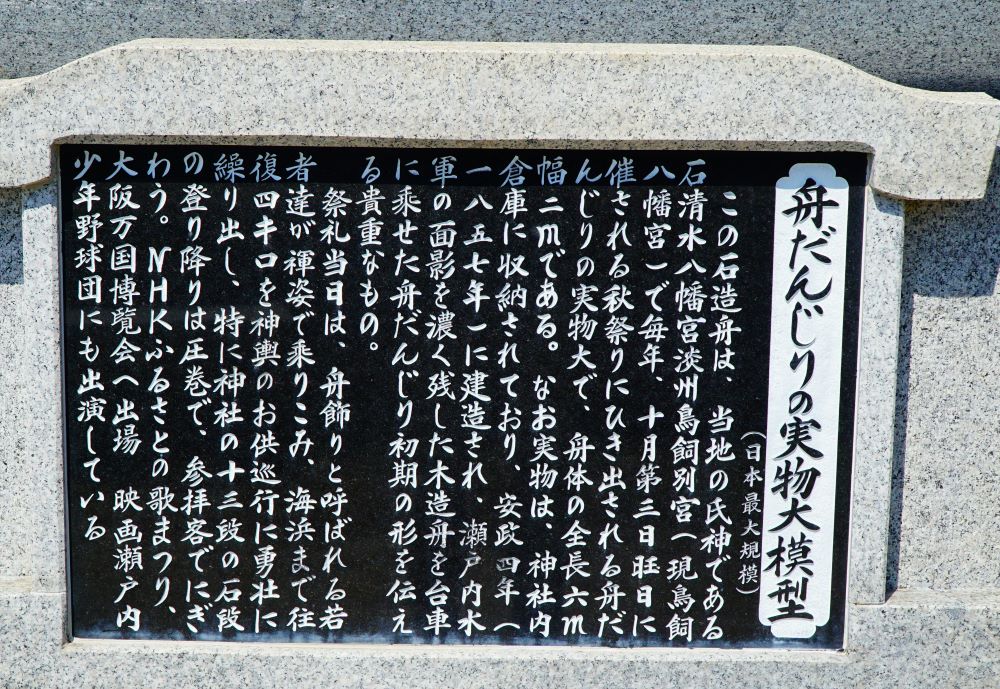 舟だんじりの実物大模型
（日本最大規模）
この石造舟は、当地の氏神である
石清水八幡宮淡州鳥飼別宮（現鳥飼
八幡宮）で毎年、十月第三日旺日に
催される秋祭りにひき出される舟だ
んじりの実物大で、舟体の全長六m
幅二mである。なお実物は、神社内
倉庫に収納されており、安政四年（
一八五七年）に建造され、瀬戸内水
軍の面影を濃く残した木造舟を台車
に乗せた舟だんじり初期の形を伝え
る貴重なもの。
祭礼当日は、舟飾りと呼ばれる若
者達が褌姿で乗りこみ、海浜まで往
復四キロを神輿のお供巡行に勇壮に
繰り出し、特に神社の十三段の石段
の登り降りは圧巻で、参拝客でにぎ
わう。NHKふるさとの歌まつり、
大阪万国博覧会へ出場 映画瀬戸内
少年野球団にも出演している